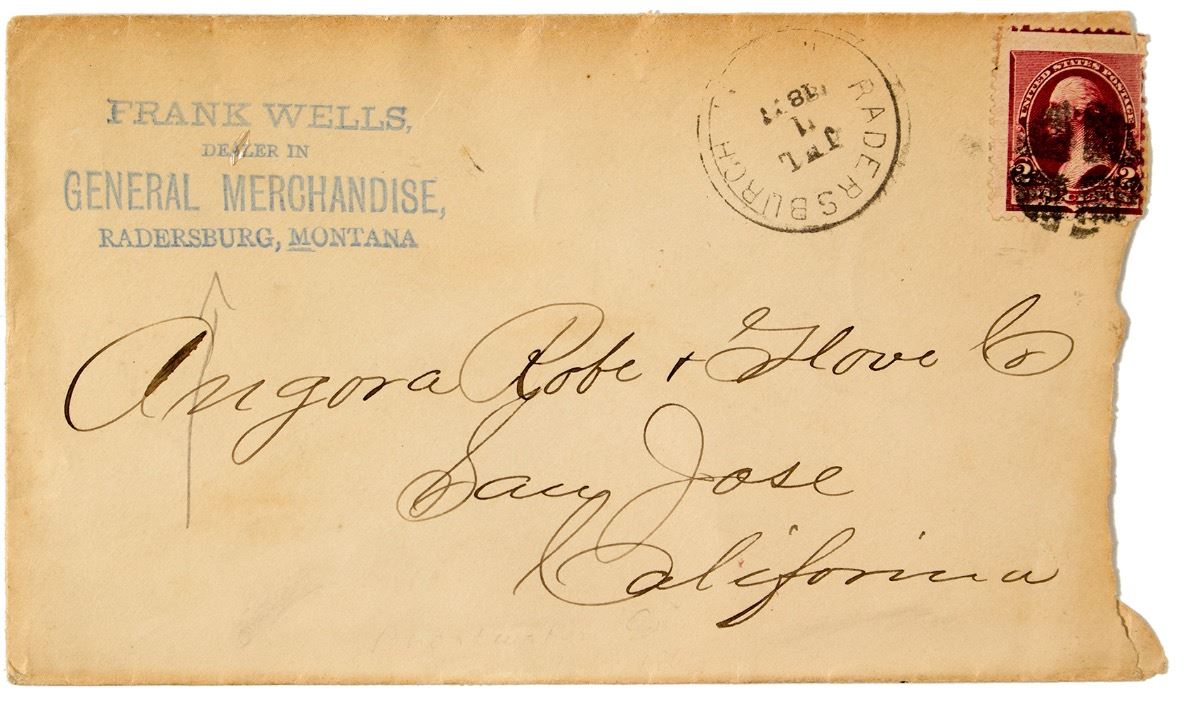 FRANK WELLS,
DEALER IN
GENERAL MERCHANDISE,
RADERSBURG, MONTANA
RADERSBURGH
11
UNITED STATES POSTAGE
2 2
Angora Robe + Glove Co
San Jose
California